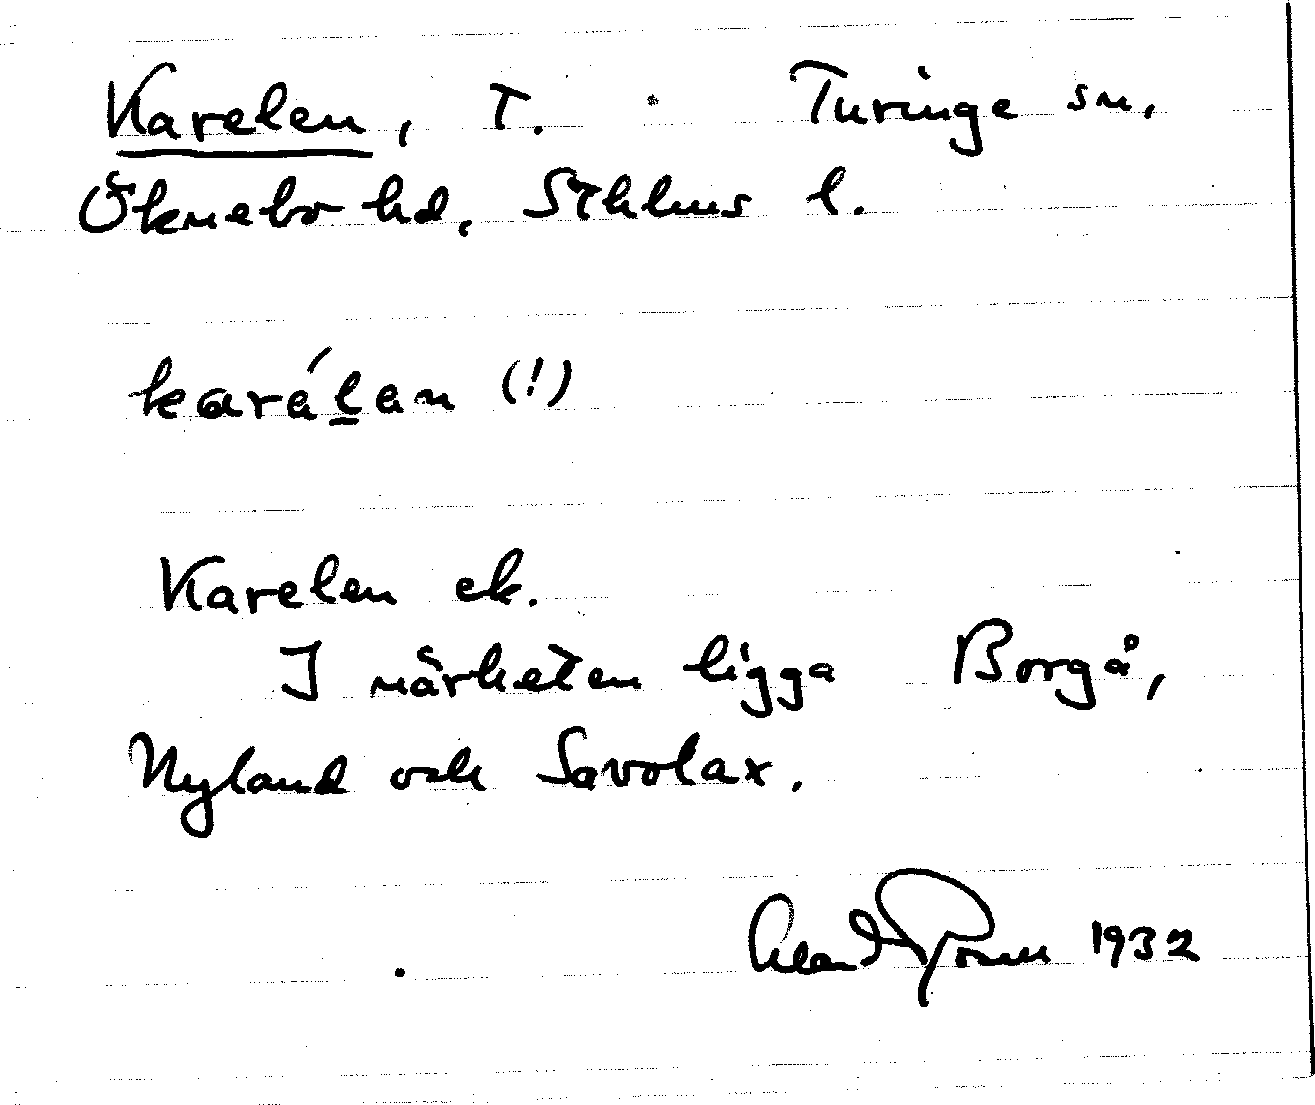 Karelen, T. Turinge sn.
Öknebo hd, Sthlms l.
karálan (!)
Karelen ek.
I närheten ligga Borgå,
Nyland och Savolax.
1932